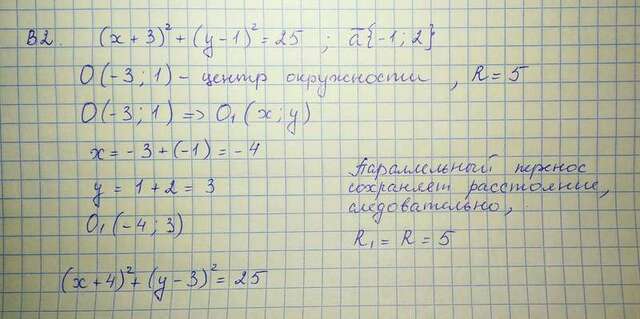 В2. (x + 3)² + (y – 1)² = 25 ; a̅{-1; 2}
O(-3; 1) – центр окружности, R = 5
O(-3; 1) => O₁(x; y)
x = -3 + (-1) = -4
y = 1 + 2 = 3
O₁(-4; 3)
Параллельный перенос
сохраняет расстояние,
следовательно,
R₁ = R = 5
(x + 4)² + (y – 3)² = 25